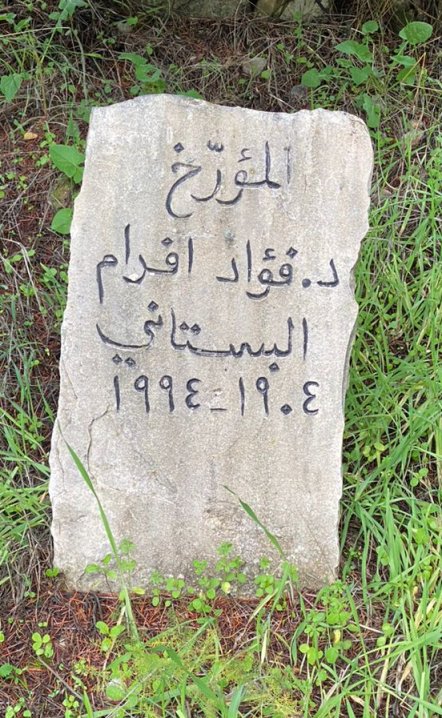 المؤرّخ
د. فؤاد افرام
البستاني
١٩٠٤-١٩٩٤